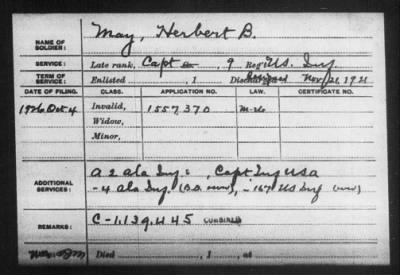 NAME OF SOLDIER: May, Herbert B.
SERVICE: Late rank, Capt , 9 Reg't U.S. Inf.
TERM OF SERVICE: Enlisted , 1 Discharged Nov 21, 1921
DATE OF FILING. CLASS. APPLICATION NO. LAW. CERTIFICATE NO.
1926 Oct 4 Invalid, 1557,370
Widow,
Minor,
ADDITIONAL SERVICES: A 2 Ala Inf. : Capt Inf USA
- 4 Ala Inf. , - 167 US Inf
REMARKS: C-1,139,445 COMBINED
Died , 1 , at